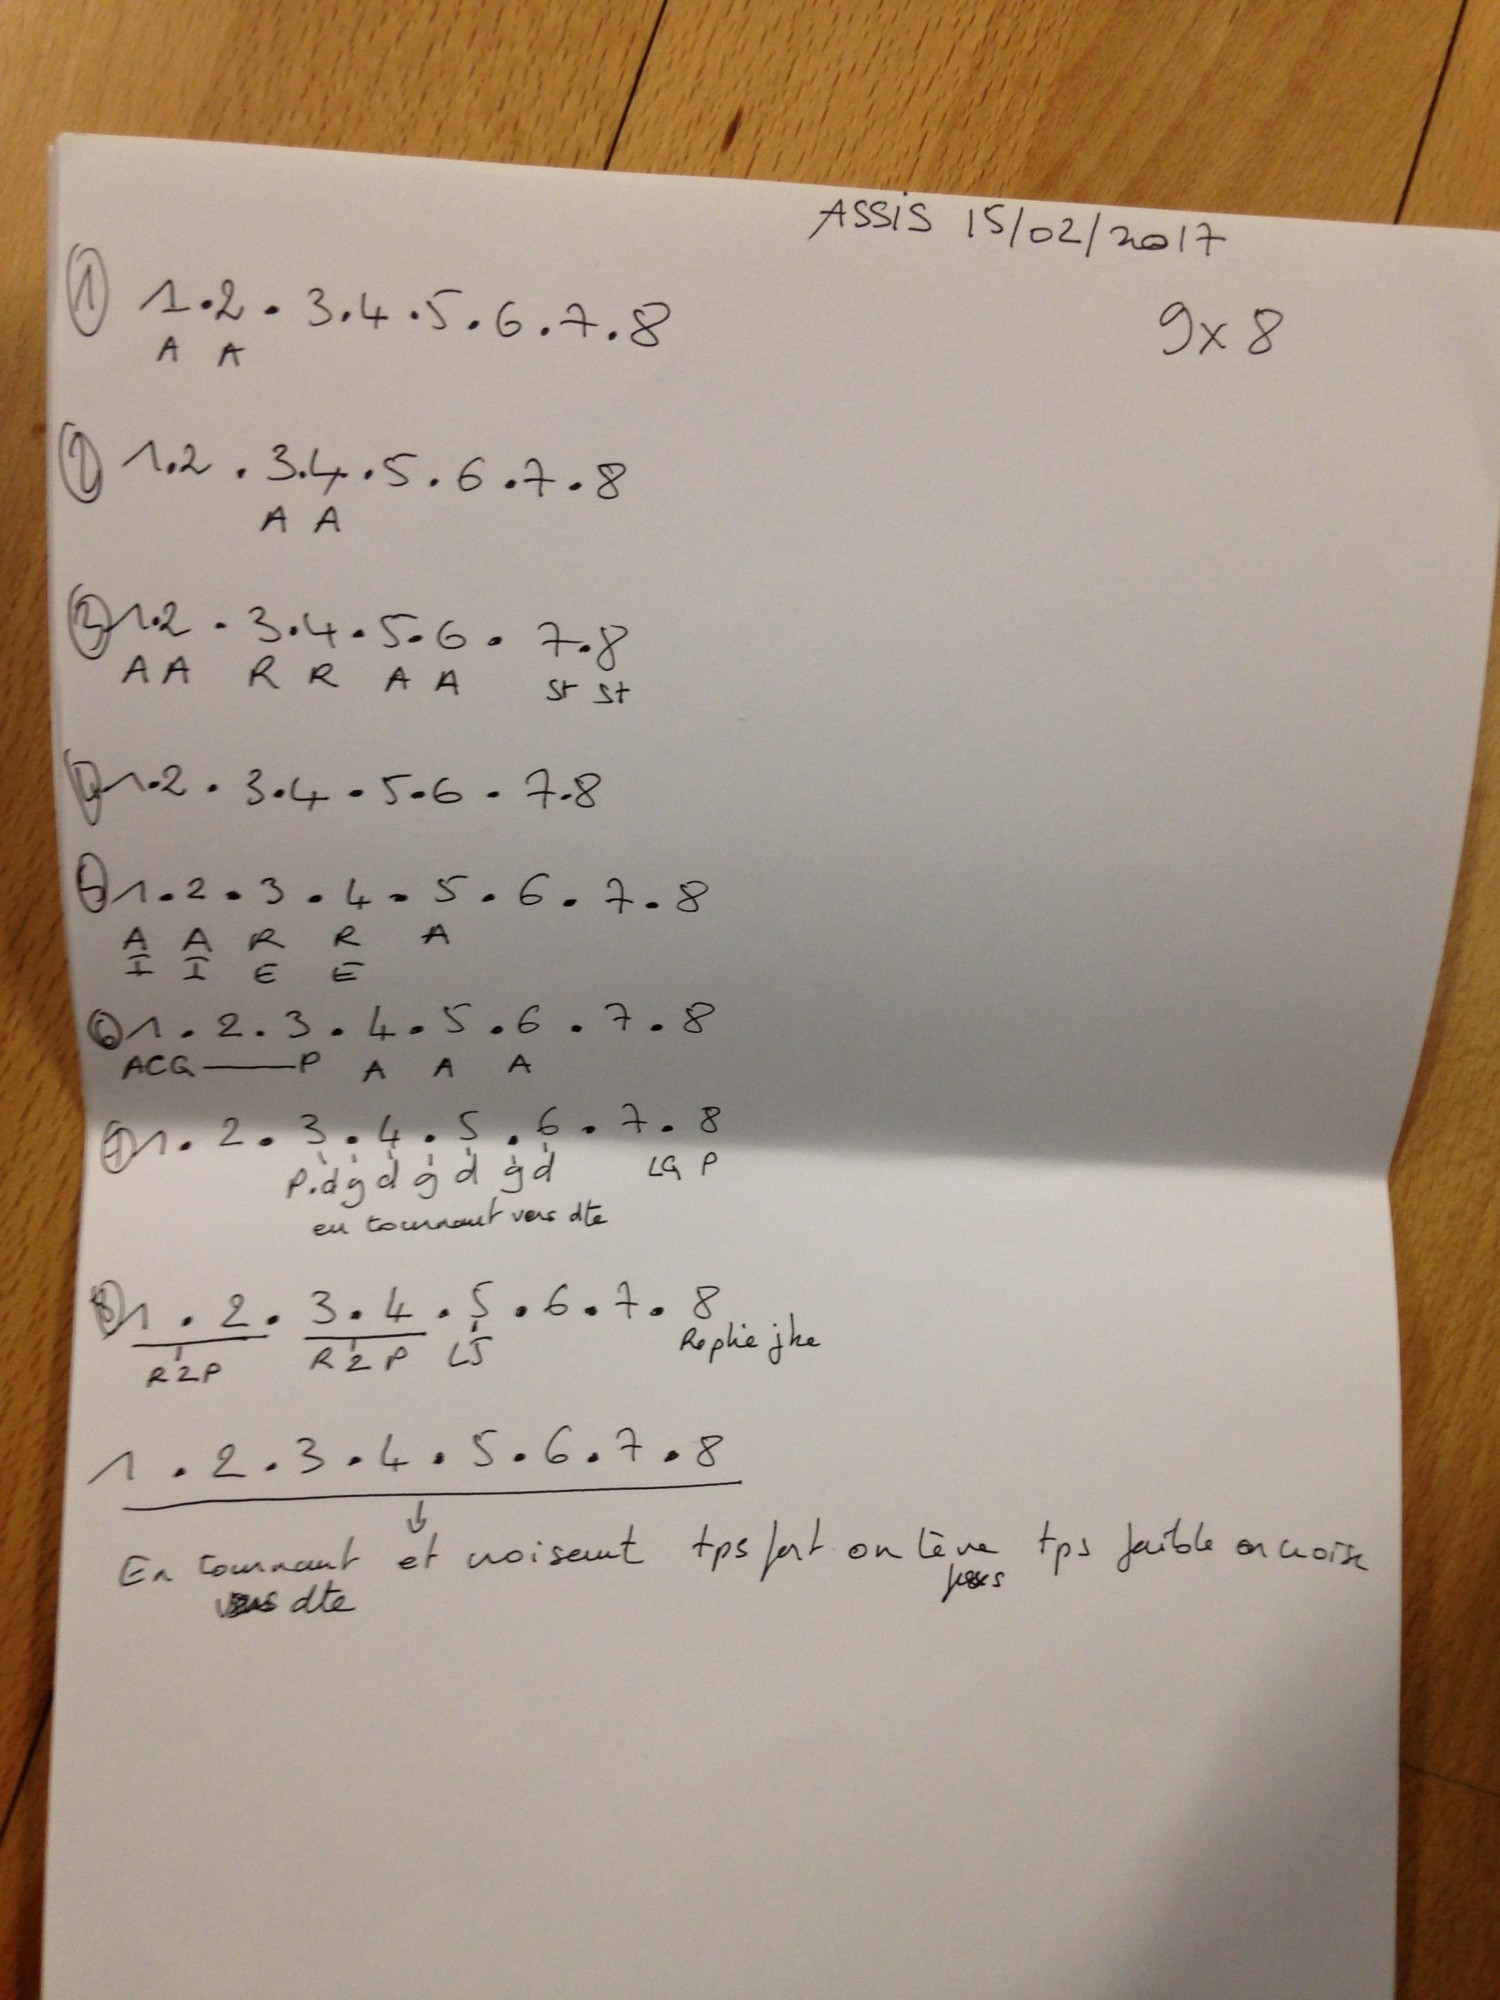 ASSIS 15/02/2017
① 1.2.3.4.5.6.7.8 9x8
A A
② 1.2.3.4.5.6.7.8
A A
③ 1.2.3.4.5.6.7.8
A A R R A A St St
④ 1.2.3.4.5.6.7.8
⑤ 1.2.3.4.5.6.7.8
A A R R A
I I E E
⑥ 1.2.3.4.5.6.7.8
ACG——P A A A
⑦ 1.2.3.4.5.6.7.8
P.d g d g d g d LG P
en tournant vers dte
⑧ 1.2.3.4.5.6.7.8
R2P R2P LJ Replie jbe
1.2.3.4.5.6.7.8
↓
En tournant et croisant tps fort on lève tps faible on croise
vers dte